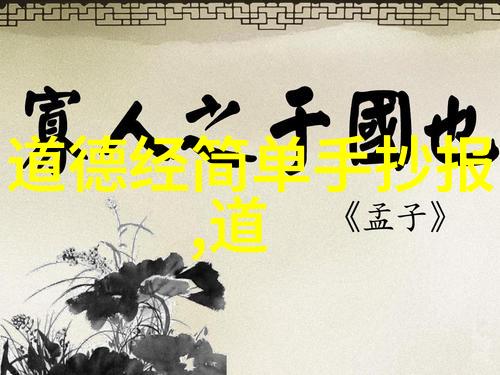 寡人之于國也
道德经简单手抄报
,道
《孟子》